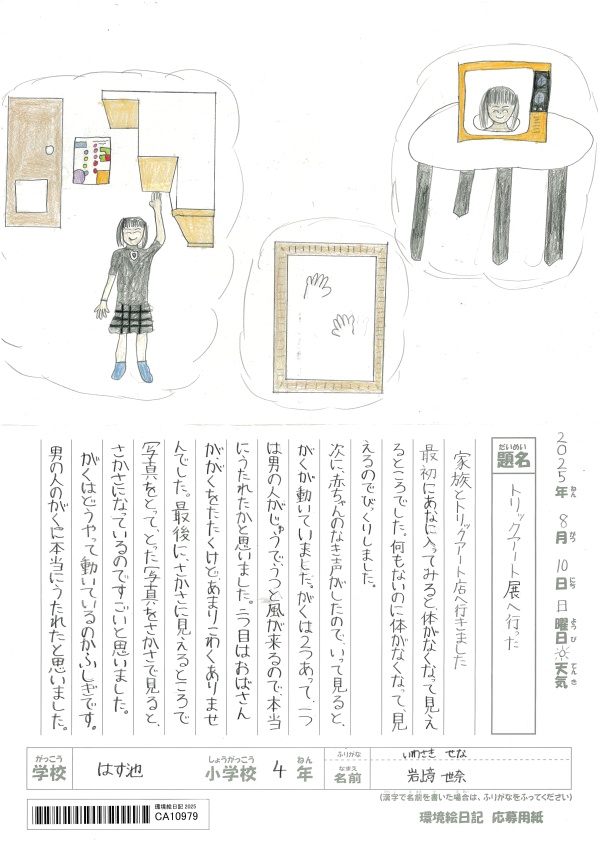 2025年ねん 8月がつ 10日にち 日曜日ようび ☼天気てんき
題名だいめい トリックアート展へ行った
家族とトリックアート店へ行きました
最初にあなに入ってみると、体がなくなって見え
るところでした。何もないのに体がなくなって、見
えるのでびっくりしました。
次に、赤ちゃんのなき声がしたので、いって見ると、
がくが動いていました。がくは2つあって、一つ
は男の人がじゅうで、うつと風が来るので、本当
にうたれたかと思いました。二つ目はおばさん
が、がくをたたくけど、あまりこわくありませ
んでした。最後に、さかさに見えるところで
写真をとって、とった写真をさかさで見ると、
さかさになっているのですごいと思いました。
がくはどうやって動いているのかふしぎです。
男の人のがくに本当にうたれたと思いました。
学校がっこう はす池 小学校しょうがっこう 4 年ねん
ふりがな いわさき せな
名前なまえ 岩﨑 世奈
(漢字で名前を書いた場合は、ふりがなをふってください)
環境絵日記 応募用紙
環境絵日記 2025
CA10979